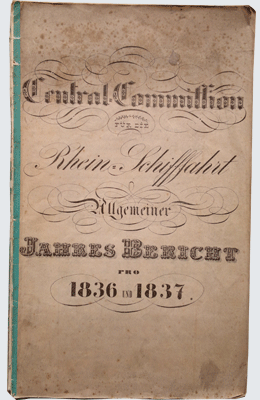 Central-Commission
FÜR DIE
Rhein-Schifffahrt
Allgemeiner
JAHRES BERICHT
PRO
1836 UND 1837.